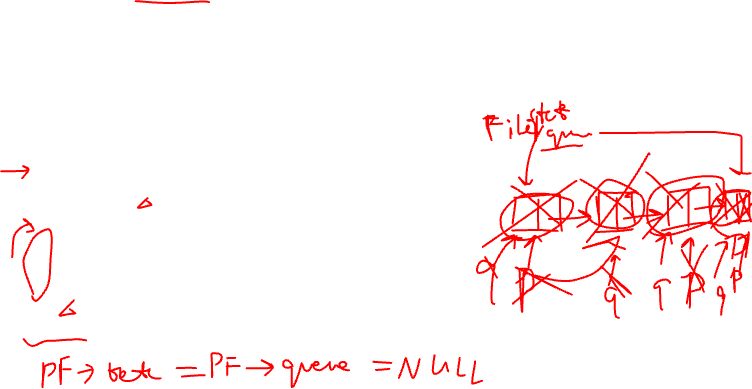 File
tete
queue
q
P
q
q
P
q
P
PF→tete = PF→queue = NULL